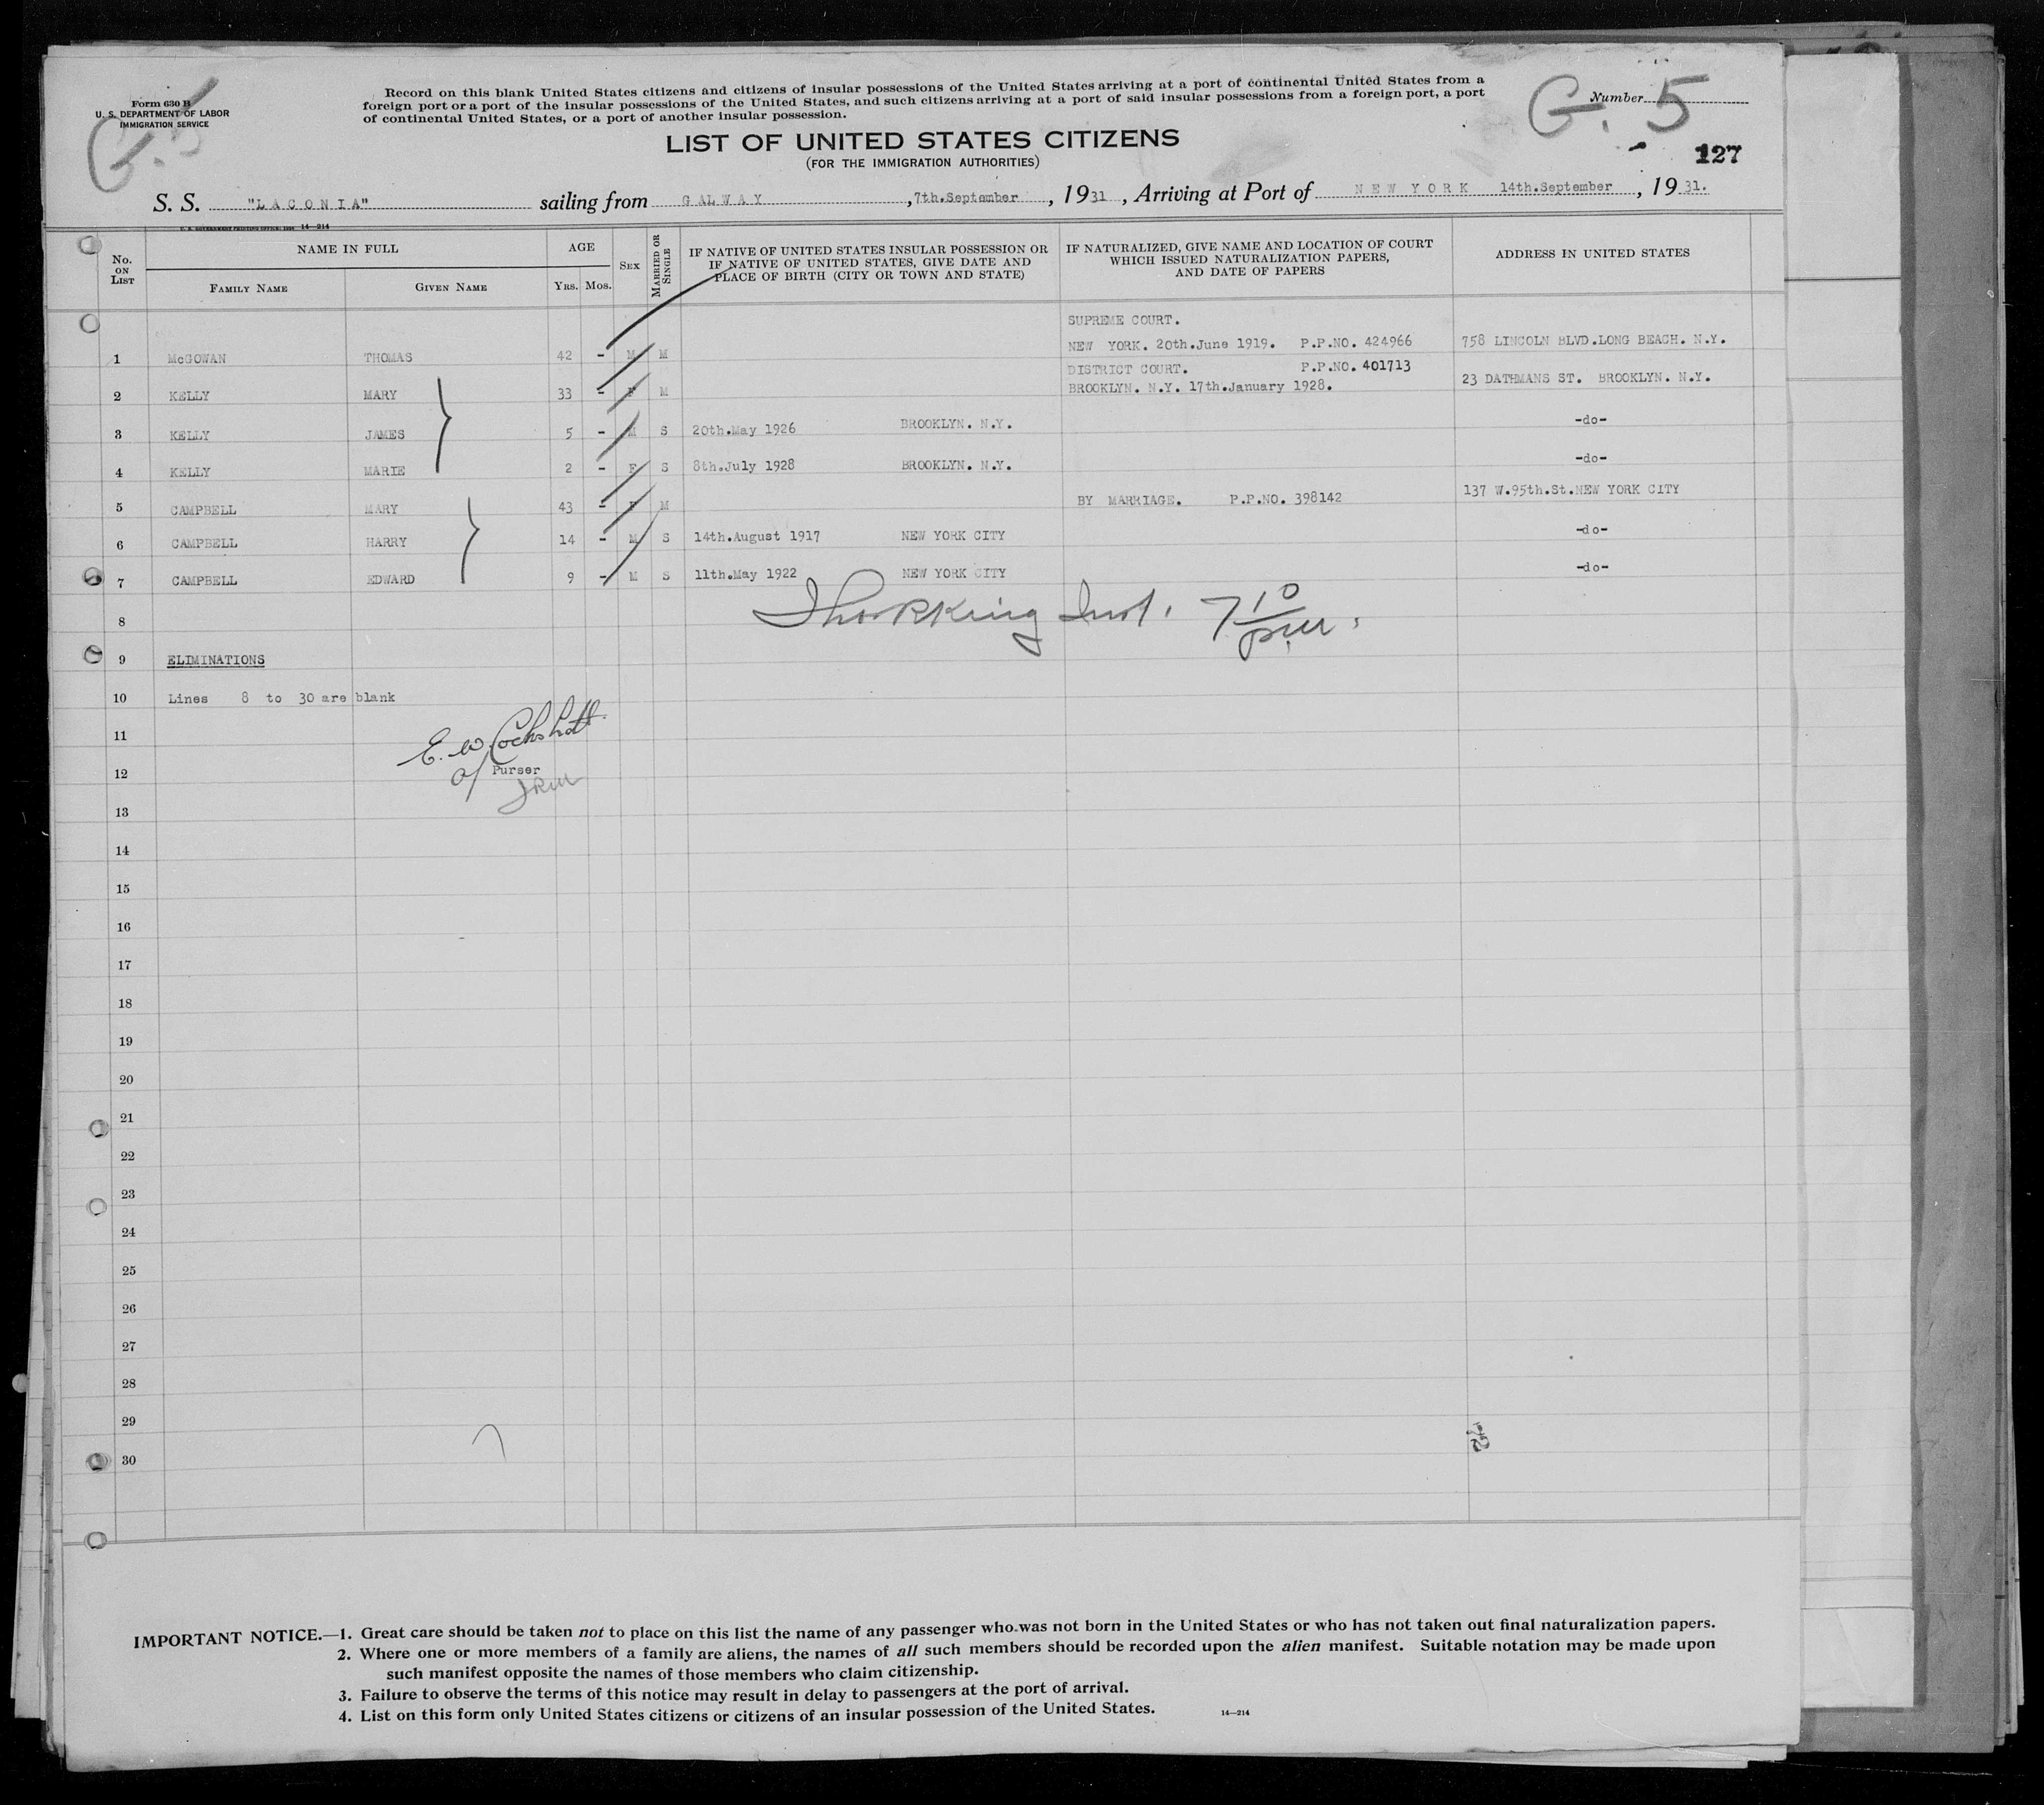 Form 630 B
U. S. DEPARTMENT OF LABOR
IMMIGRATION SERVICE
Record on this blank United States citizens and citizens of insular possessions of the United States arriving at a port of continental United States from a
foreign port or a port of the insular possessions of the United States, and such citizens arriving at a port of said insular possessions from a foreign port, a port
of continental United States, or a port of another insular possession.
Number G. 5
LIST OF UNITED STATES CITIZENS
(FOR THE IMMIGRATION AUTHORITIES)
127
S. S. "LACONIA" sailing from GALWAY, 7th.September, 1931, Arriving at Port of NEW YORK 14th.September, 1931.
U. S. GOVERNMENT PRINTING OFFICE: 14—214
No. ON LIST
NAME IN FULL
FAMILY NAME
GIVEN NAME
AGE
YRS. MOS.
SEX
MARRIED OR SINGLE
IF NATIVE OF UNITED STATES INSULAR POSSESSION OR
IF NATIVE OF UNITED STATES, GIVE DATE AND
PLACE OF BIRTH (CITY OR TOWN AND STATE)
IF NATURALIZED, GIVE NAME AND LOCATION OF COURT
WHICH ISSUED NATURALIZATION PAPERS,
AND DATE OF PAPERS
ADDRESS IN UNITED STATES
SUPREME COURT.
1 McGOWAN THOMAS 42 - M M NEW YORK. 20th.June 1919. P.P.NO. 424966 758 LINCOLN BLVD.LONG BEACH. N.Y.
DISTRICT COURT. P.P.NO. 401713
2 KELLY MARY 33 - F M BROOKLYN. N.Y. 17th.January 1928. 23 DATHMANS ST. BROOKLYN. N.Y.
3 KELLY JAMES 5 - M S 20th.May 1926 BROOKLYN. N.Y. -do-
4 KELLY MARIE 2 - F S 8th.July 1928 BROOKLYN. N.Y. -do-
5 CAMPBELL MARY 43 - F M BY MARRIAGE. P.P.NO. 398142 137 W.95th.St.NEW YORK CITY
6 CAMPBELL HARRY 14 - M S 14th.August 1917 NEW YORK CITY -do-
7 CAMPBELL EDWARD 9 - M S 11th.May 1922 NEW YORK CITY -do-
8 Inst. 7 10 pm.
9 ELIMINATIONS
10 Lines 8 to 30 are blank
11 E. W. Cockshott
12 Purser
13
14
15
16
17
18
19
20
21
22
23
24
25
26
27
28
29
30
IMPORTANT NOTICE.—1. Great care should be taken not to place on this list the name of any passenger who was not born in the United States or who has not taken out final naturalization papers.
2. Where one or more members of a family are aliens, the names of all such members should be recorded upon the alien manifest. Suitable notation may be made upon
such manifest opposite the names of those members who claim citizenship.
3. Failure to observe the terms of this notice may result in delay to passengers at the port of arrival.
4. List on this form only United States citizens or citizens of an insular possession of the United States.
14—214